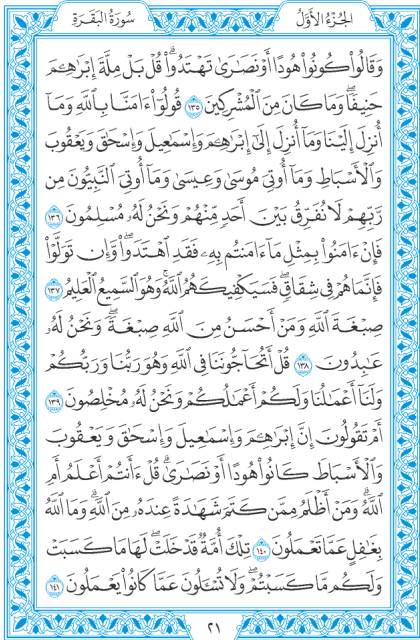 الجُزْءُ الأَوَّلُ
سُورَةُ البَقَرَةِ
وَقَالُوا۟ كُونُوا۟ هُودًا أَوْ نَصَـٰرَىٰ تَهْتَدُوا۟ ۗ قُلْ بَلْ مِلَّةَ إِبْرَٰهِـۧمَ
حَنِيفًا ۖ وَمَا كَانَ مِنَ ٱلْمُشْرِكِينَ ١٣٥ قُولُوٓا۟ ءَامَنَّا بِٱللَّهِ وَمَآ
أُنزِلَ إِلَيْنَا وَمَآ أُنزِلَ إِلَىٰٓ إِبْرَٰهِـۧمَ وَإِسْمَـٰعِيلَ وَإِسْحَـٰقَ وَيَعْقُوبَ
وَٱلْأَسْبَاطِ وَمَآ أُوتِىَ مُوسَىٰ وَعِيسَىٰ وَمَآ أُوتِىَ ٱلنَّبِيُّونَ مِن
رَّبِّهِمْ لَا نُفَرِّقُ بَيْنَ أَحَدٍ مِّنْهُمْ وَنَحْنُ لَهُۥ مُسْلِمُونَ ١٣٦
فَإِنْ ءَامَنُوا۟ بِمِثْلِ مَآ ءَامَنتُم بِهِۦ فَقَدِ ٱهْتَدَوا۟ ۖ وَّإِن تَوَلَّوْا۟
فَإِنَّمَا هُمْ فِى شِقَاقٍ ۖ فَسَيَكْفِيكَهُمُ ٱللَّهُ ۚ وَهُوَ ٱلسَّمِيعُ ٱلْعَلِيمُ ١٣٧
صِبْغَةَ ٱللَّهِ ۖ وَمَنْ أَحْسَنُ مِنَ ٱللَّهِ صِبْغَةً ۖ وَنَحْنُ لَهُۥ
عَـٰبِدُونَ ١٣٨ قُلْ أَتُحَآجُّونَنَا فِى ٱللَّهِ وَهُوَ رَبُّنَا وَرَبُّكُمْ
وَلَنَآ أَعْمَـٰلُنَا وَلَكُمْ أَعْمَـٰلُكُمْ وَنَحْنُ لَهُۥ مُخْلِصُونَ ١٣٩
أَمْ تَقُولُونَ إِنَّ إِبْرَٰهِـۧمَ وَإِسْمَـٰعِيلَ وَإِسْحَـٰقَ وَيَعْقُوبَ
وَٱلْأَسْبَاطَ كَانُوا۟ هُودًا أَوْ نَصَـٰرَىٰ ۗ قُلْ ءَأَنتُمْ أَعْلَمُ أَمِ
ٱللَّهُ ۗ وَمَنْ أَظْلَمُ مِمَّن كَتَمَ شَهَـٰدَةً عِندَهُۥ مِنَ ٱللَّهِ ۗ وَمَا ٱللَّهُ
بِغَـٰفِلٍ عَمَّا تَعْمَلُونَ ١٤٠ تِلْكَ أُمَّةٌ قَدْ خَلَتْ ۖ لَهَا مَا كَسَبَتْ
وَلَكُم مَّا كَسَبْتُمْ ۖ وَلَا تُسْـَٔلُونَ عَمَّا كَانُوا۟ يَعْمَلُونَ ١٤١
٢١